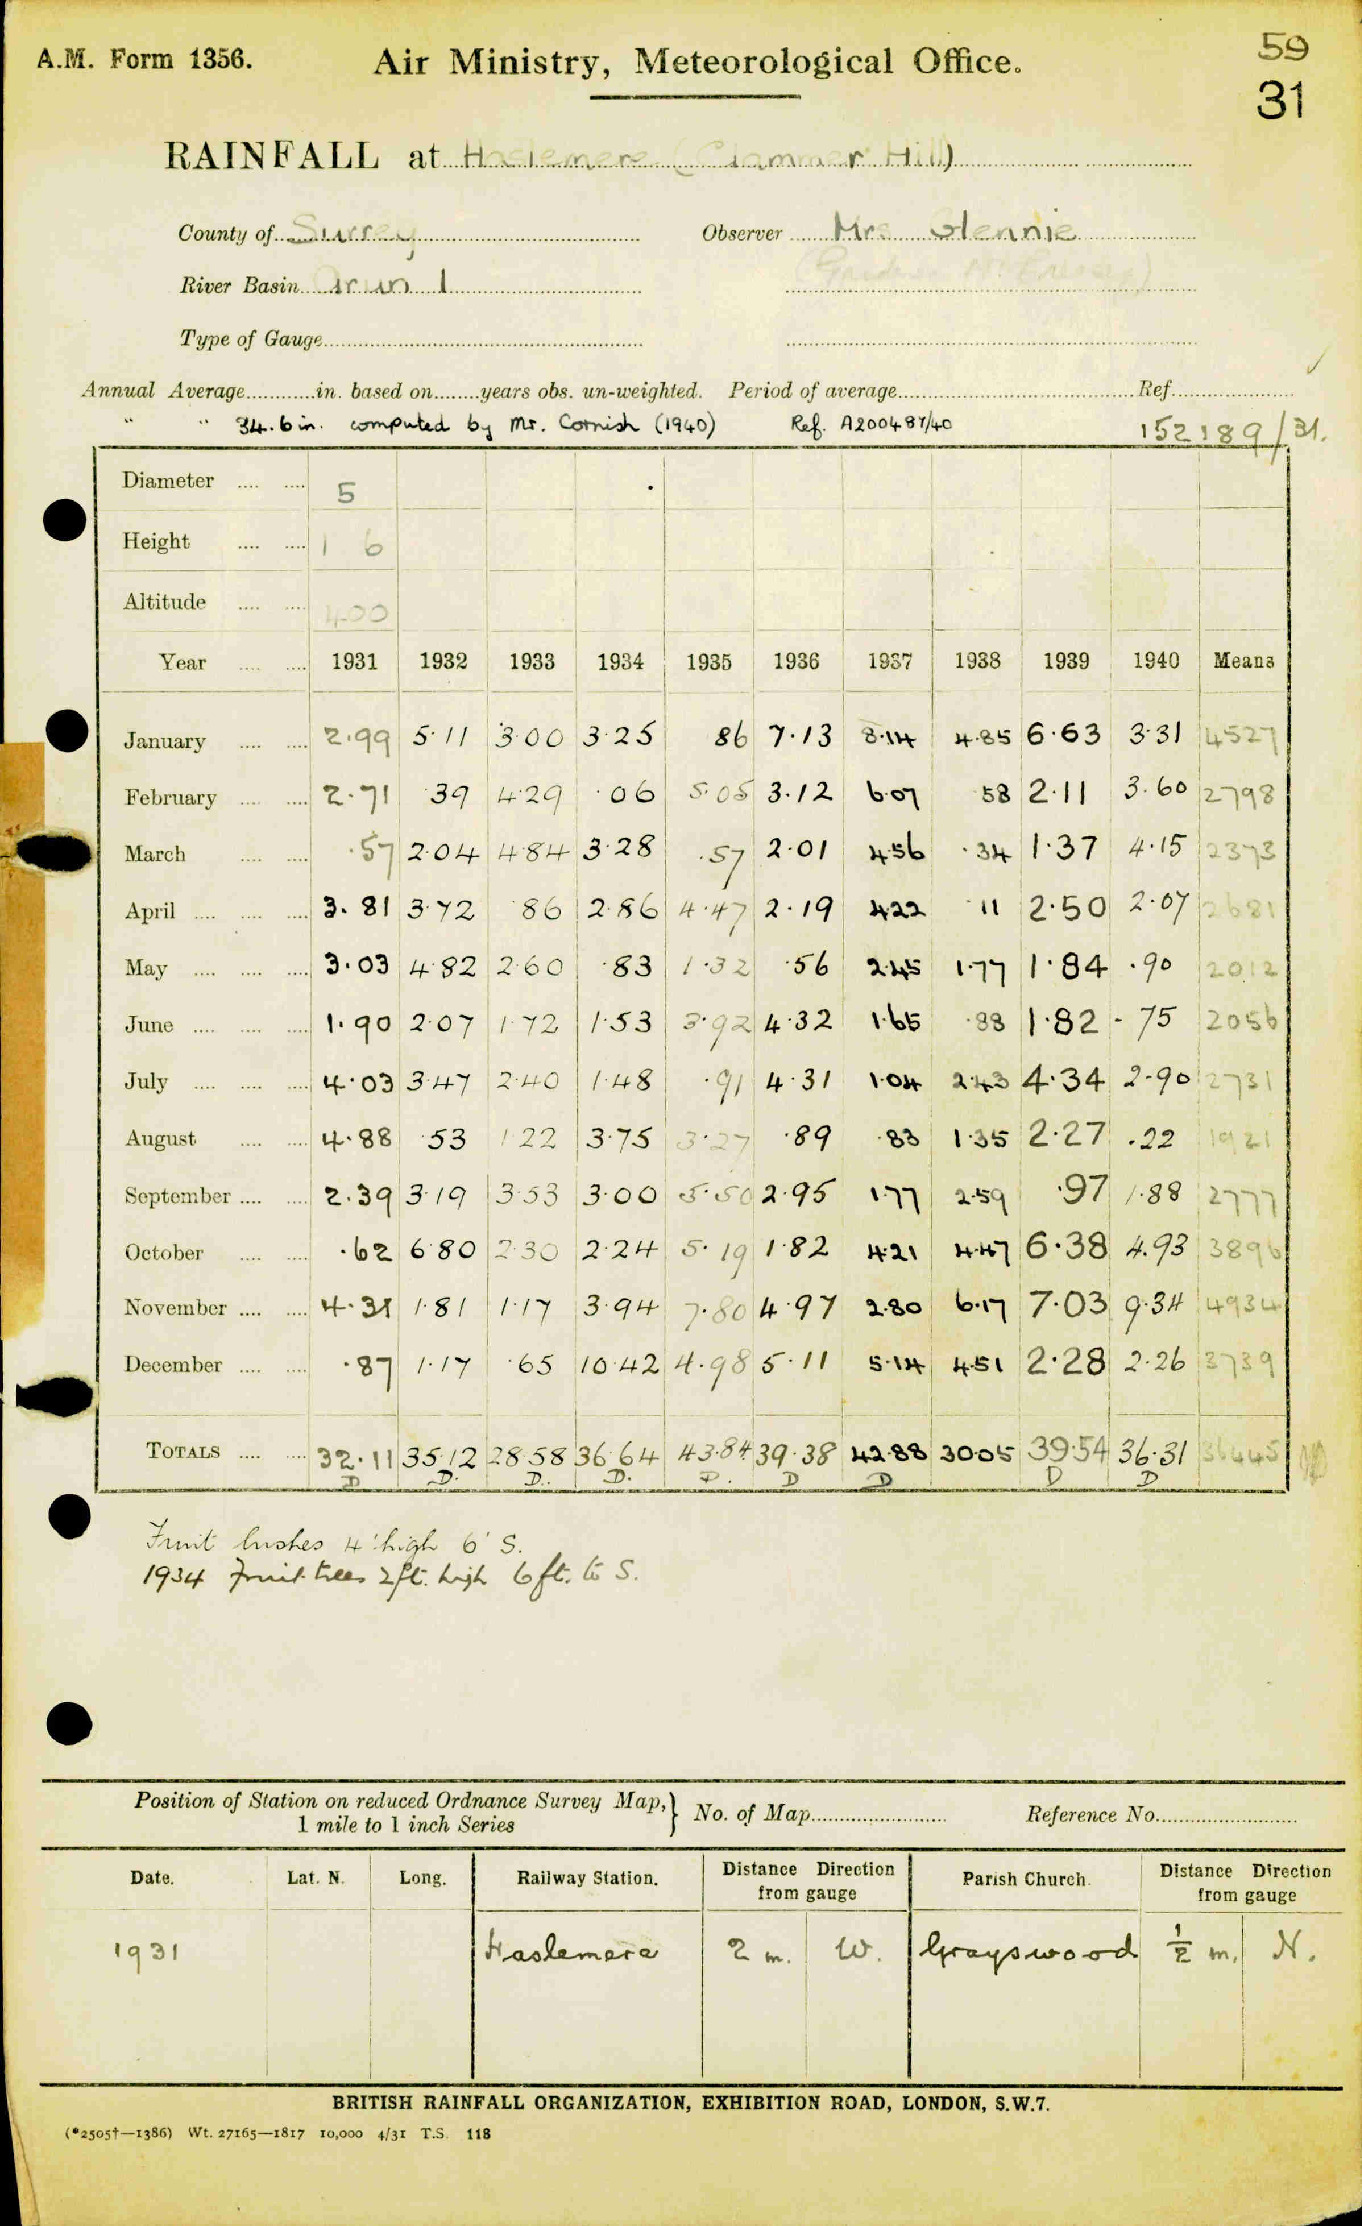 A.M. Form 1356.
Air Ministry, Meteorological Office.
59
31
RAINFALL at Haslemere (Clammer Hill)
County of Surrey
Observer Mrs Glennie
River Basin Arun 1
Type of Gauge
Annual Average in. based on years obs. un-weighted. Period of average Ref.
" " 34.6 in. computed by Mr. Cornish (1940) Ref. A200487/40 152189/31.
Diameter 5
Height 1 6
Altitude 400
Year 1931 1932 1933 1934 1935 1936 1937 1938 1939 1940 Means
January 2.99 5.11 3.00 3.25 86 7.13 8.14 4.85 6.63 3.31 4527
February 2.71 39 4.29 .06 5.05 3.12 6.07 58 2.11 3.60 2798
March .57 2.04 4.84 3.28 .57 2.01 4.56 .34 1.37 4.15 2373
April 3.81 3.72 86 2.86 4.47 2.19 4.22 11 2.50 2.07 2681
May 3.03 4.82 2.60 .83 1.32 .56 2.45 1.77 1.84 .90 2012
June 1.90 2.07 1.72 1.53 3.92 4.32 1.65 .88 1.82 .75 2056
July 4.03 3.47 2.40 1.48 .91 4.31 1.04 2.43 4.34 2.90 2731
August 4.88 .53 1.22 3.75 3.27 .89 .83 1.35 2.27 .22 1921
September 2.39 3.19 3.53 3.00 5.50 2.95 1.77 2.59 .97 1.88 2777
October .62 6.80 2.30 2.24 5.19 1.82 4.21 4.47 6.38 4.93 3896
November 4.31 1.81 1.17 3.94 7.80 4.97 2.80 6.17 7.03 9.34 4934
December .87 1.17 .65 10.42 4.98 5.11 5.14 4.51 2.28 2.26 3739
TOTALS 32.11 35.12 28.58 36.64 43.84 39.38 42.88 30.05 39.54 36.31 36445
D D. D. D. D. D D D D
Fruit bushes 4' high 6' S.
1934 Fruit trees 2ft. high 6ft. to S.
Position of Station on reduced Ordnance Survey Map, 1 mile to 1 inch Series } No. of Map Reference No.
Date. Lat. N. Long. Railway Station. Distance Direction from gauge Parish Church. Distance Direction from gauge
1931 Haslemere 2 m. W. Grayswood ½ m. N.
BRITISH RAINFALL ORGANIZATION, EXHIBITION ROAD, LONDON, S.W.7.
(*2505†—1386) Wt. 27165—1817 10,000 4/31 T.S. 118